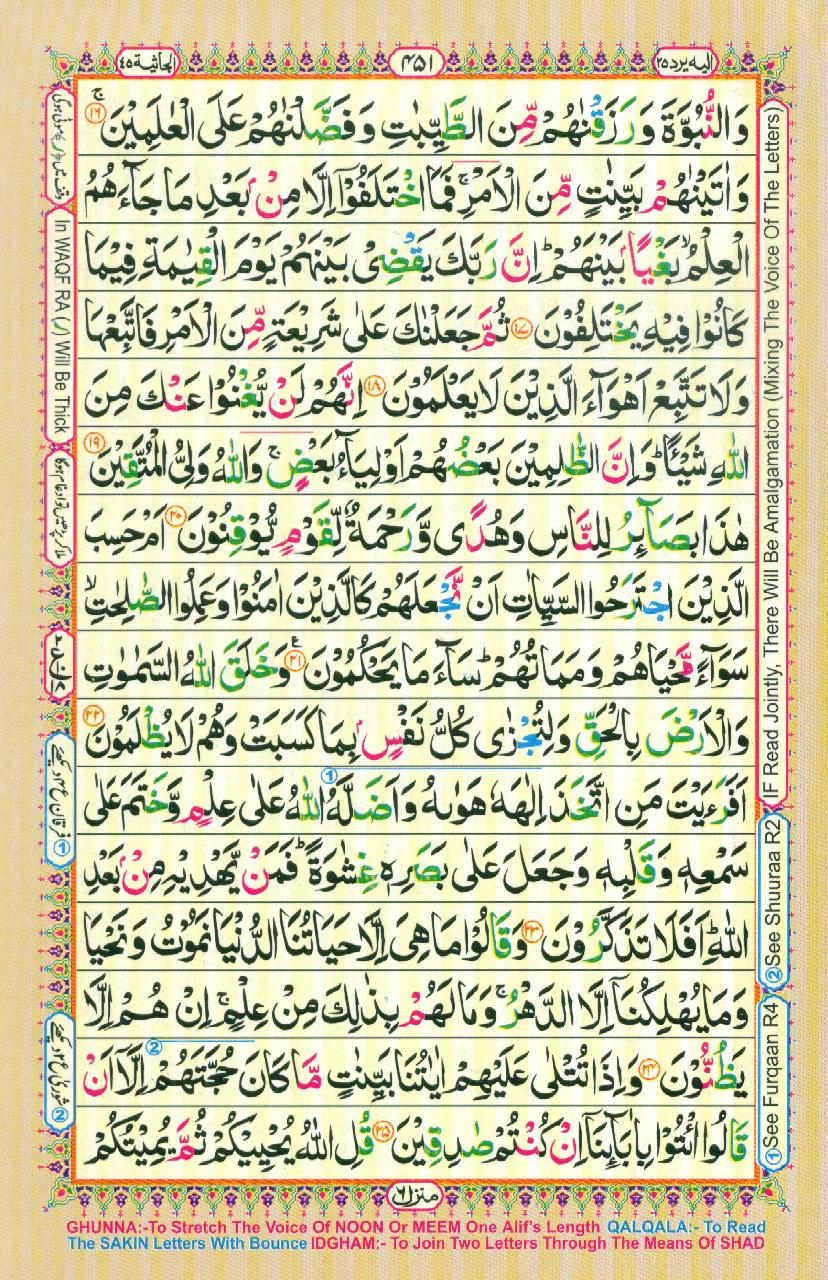 الیہ یرد ۲۵
۴۵۱
الجاثیة ۴۵
وَالنُّبُوَّةَ وَرَزَقْنٰهُمْ مِّنَ الطَّيِّبٰتِ وَفَضَّلْنٰهُمْ عَلَى الْعٰلَمِيْنَ ۚ ۱۶
وَاٰتَيْنٰهُمْ بَيِّنٰتٍ مِّنَ الْاَمْرِ ۚ فَمَا اخْتَلَفُوْٓا اِلَّا مِنْۢ بَعْدِ مَا جَآءَهُمُ
الْعِلْمُ ۙ بَغْيًاۢ بَيْنَهُمْ ؕ اِنَّ رَبَّكَ يَقْضِىْ بَيْنَهُمْ يَوْمَ الْقِيٰمَةِ فِيْمَا
كَانُوْا فِيْهِ يَخْتَلِفُوْنَ ۱۷ ثُمَّ جَعَلْنٰكَ عَلٰى شَرِيْعَةٍ مِّنَ الْاَمْرِ فَاتَّبِعْهَا
وَلَا تَتَّبِعْ اَهْوَآءَ الَّذِيْنَ لَا يَعْلَمُوْنَ ۱۸ اِنَّهُمْ لَنْ يُّغْنُوْا عَنْكَ مِنَ
اللّٰهِ شَيْـًٔا ؕ وَاِنَّ الظّٰلِمِيْنَ بَعْضُهُمْ اَوْلِيَآءُ بَعْضٍ ۚ وَاللّٰهُ وَلِىُّ الْمُتَّقِيْنَ ۱۹
هٰذَا بَصَآئِرُ لِلنَّاسِ وَهُدًى وَّرَحْمَةٌ لِّقَوْمٍ يُّوْقِنُوْنَ ۲۰ اَمْ حَسِبَ
الَّذِيْنَ اجْتَرَحُوا السَّيِّاٰتِ اَنْ نَّجْعَلَهُمْ كَالَّذِيْنَ اٰمَنُوْا وَعَمِلُوا الصّٰلِحٰتِ ۙ
سَوَآءً مَّحْيَاهُمْ وَمَمَاتُهُمْ ؕ سَآءَ مَا يَحْكُمُوْنَ ۲۱ وَخَلَقَ اللّٰهُ السَّمٰوٰتِ
وَالْاَرْضَ بِالْحَقِّ وَلِتُجْزٰى كُلُّ نَفْسٍۢ بِمَا كَسَبَتْ وَهُمْ لَا يُظْلَمُوْنَ ۲۲
اَفَرَءَيْتَ مَنِ اتَّخَذَ اِلٰهَهٗ هَوٰىهُ وَاَضَلَّهُ اللّٰهُ عَلٰى عِلْمٍ وَّخَتَمَ عَلٰى
سَمْعِهٖ وَقَلْبِهٖ وَجَعَلَ عَلٰى بَصَرِهٖ غِشٰوَةً ؕ فَمَنْ يَّهْدِيْهِ مِنْۢ بَعْدِ
اللّٰهِ ؕ اَفَلَا تَذَكَّرُوْنَ ۲۳ وَقَالُوْا مَا هِىَ اِلَّا حَيَاتُنَا الدُّنْيَا نَمُوْتُ وَنَحْيَا
وَمَا يُهْلِكُنَآ اِلَّا الدَّهْرُ ۚ وَمَا لَهُمْ بِذٰلِكَ مِنْ عِلْمٍ ۚ اِنْ هُمْ اِلَّا
يَظُنُّوْنَ ۲۴ وَاِذَا تُتْلٰى عَلَيْهِمْ اٰيٰتُنَا بَيِّنٰتٍ مَّا كَانَ حُجَّتَهُمْ اِلَّآ اَنْ
قَالُوا ائْتُوْا بِاٰبَآئِنَآ اِنْ كُنْتُمْ صٰدِقِيْنَ ۲۵ قُلِ اللّٰهُ يُحْيِيْكُمْ ثُمَّ يُمِيْتُكُمْ
منزل ۶
IF Read Jointly, There Will Be Amalgamation (Mixing The Voice Of The Letters)
②See Shuuraa R2
①See Furqaan R4
In WAQF RA (ر) Will Be Thick
GHUNNA:-To Stretch The Voice Of NOON Or MEEM One Alif's Length QALQALA:- To Read
The SAKIN Letters With Bounce IDGHAM:- To Join Two Letters Through The Means Of SHAD